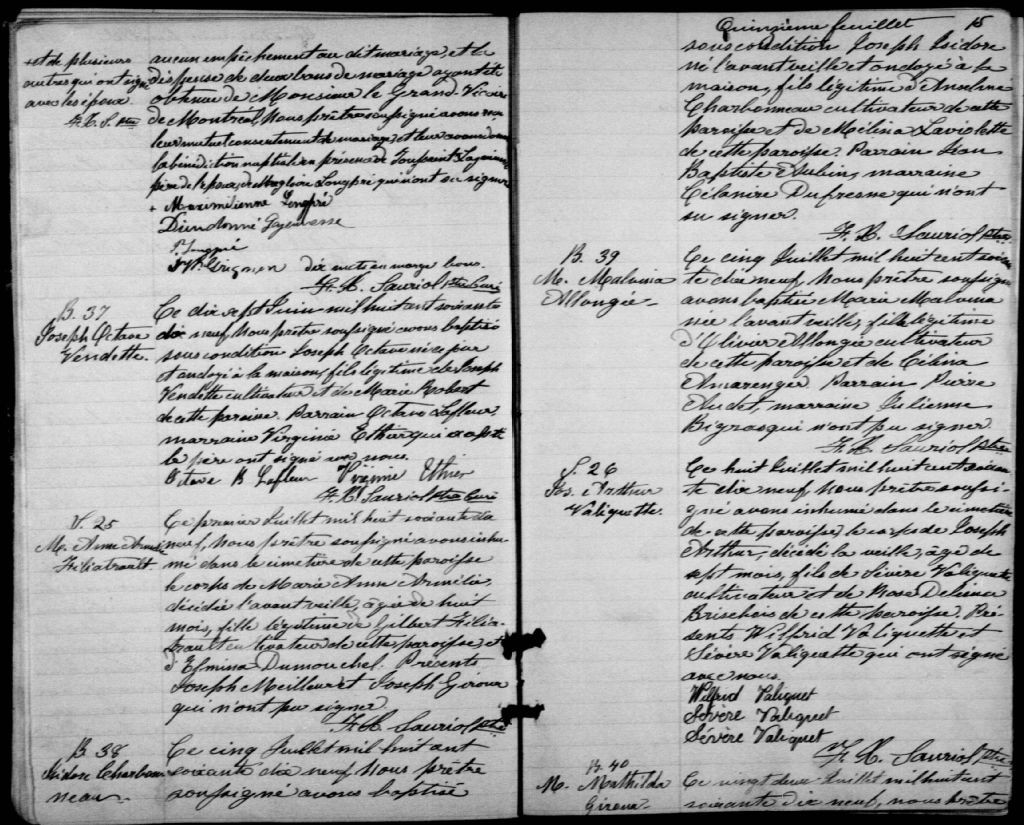 +et de plusieurs
autres qui ont signé
avec les époux
F. X. S. Ptre
aucun empêchement au dit mariage, et la
dispense de deux bans de mariage ayant été
obtenue de Monsieur le Grand Vicaire
de Montréal, Nous prêtre soussigné avons reçu
leur mutuel consentement de mariage, et leur avons donné
la bénédiction nuptiale en présence de Toussaint
père de l'époux, de Longpré qui n'ont su signer
+ Maximilienne Longpré
Dieudonné
P. Longpré
dix mots en marge bons.
F. X. Sauriol Ptre Curé
B. 37
Joseph Octave
Vendette.
Ce dix sept Juin mil huit cent soixante
dix neuf, Nous prêtre soussigné avons baptisé
sous condition Joseph Octave né ce jour
et ondoyé à la maison, fils légitime de Joseph
Vendette cultivateur et de Marie Robert
de cette paroisse. Parrain Octave Lafleur,
marraine Virginie Ethier qui
le père ont signé avec nous.
Octave B Lafleur Virginie Ethier
F. X. Sauriol Ptre Curé
S. 25
M. Anne Armélie
Filiatrault.
Ce premier Juillet mil huit soixante dix
neuf, Nous prêtre soussigné avons inhu
mé dans le cimetière de cette paroisse
le corps de Marie Anne Armélie,
décédée l'avant veille, âgée de huit
mois, fille légitime de Gilbert Filia-
trault cultivateur de cette paroisse et
d'Esmina Dumouchel. Présents
Joseph Meilleur et Joseph Giroux
qui n'ont pu signer.
F. X. Sauriol Ptre
B. 38
Isidore Charbon-
neau.
Ce cinq Juillet mil huit cent
soixante dix neuf, Nous prêtre
soussigné avons baptisé
Quinzième feuillet 15
sous condition Joseph Isidore
né l'avant veille et ondoyé à la
maison, fils légitime d'Anselme
Charbonneau cultivateur de cette
paroisse et de Mélina Laviolette
de cette paroisse. Parrain Jean
Baptiste Aubin, marraine
Célanire Dufresne qui n'ont
su signer.
F. X. Sauriol Ptre
B. 39
M. Malvina
Allongée
Ce cinq Juillet mil huit cent soixan
te dix neuf, Nous prêtre soussigné
avons baptisé Marie Malvina
née l'avant veille, fille légitime
d'Olivier Allongée cultivateur
de cette paroisse et de Célina
Amarenger. Parrain Pierre
Audet, marraine Julienne
Bigras qui n'ont pu signer.
F. X. Sauriol Ptre
S. 26
Jos. Arthur
Valiquette.
Ce huit Juillet mil huit cent soixan
te dix neuf, Nous prêtre soussi-
gné avons inhumé dans le cimetière
de cette paroisse, le corps de Joseph
Arthur, décédé la veille, âgé de
sept mois, fils de Sévère Valiquette
cultivateur et de Rose Delima
Brisebois de cette paroisse. Pré
sents Wilfrid Valiquette et
Sévère Valiquette qui ont signé
avec nous.
Wilfrid Valiquet
Sévère Valiquet
Sévère Valiquet
F. X. Sauriol Ptre
B. 40
M. Mathilda
Giroux
Ce vingt deux Juillet mil huit cent
soixante dix neuf, nous prêtre